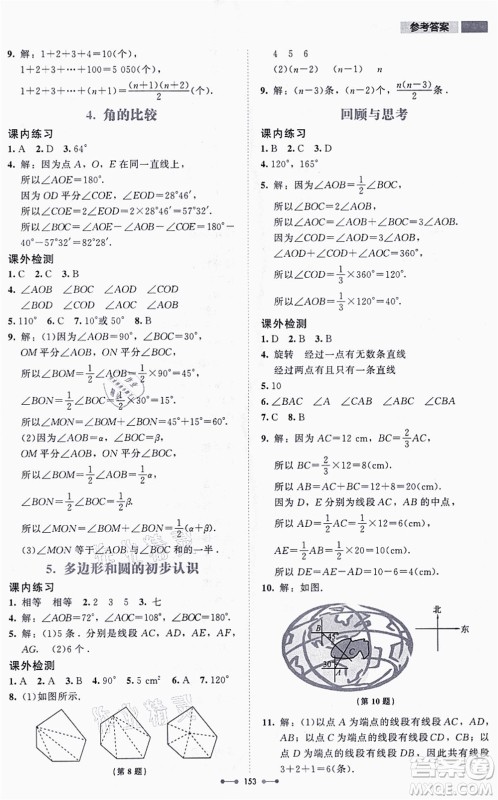 参考答案
9. 解：1+2+3+4=10(个),
1+2+3+…+100=5 050(个),
1+2+3+…+n+(n+1)=(n+1)(n+2)/2(个).
4. 角的比较
课内练习
1. A  2. D  3. 64°
4. 解：因为点 A，O，E 在同一直线上，
所以∠AOE=180°.
因为 OD 平分∠COE，∠EOD=28°46′，
所以∠COE=2∠EOD=2×28°46′=57°32′.
所以∠BOC=∠AOE-∠AOB-∠COE=180°-
40°-57°32′=82°28′.
课外检测
1. C  2. C  3. B
4. ∠AOB  ∠BOC  ∠AOC  ∠COD
5. 110°  6. C  7. 10°或 50°  8. B
9. 解：(1)因为∠AOB=90°，∠BOC=30°，
OM 平分∠AOB，ON 平分∠BOC，
所以∠BOM=1/2∠AOB=1/2×90°=45°，
∠BON=1/2∠BOC=1/2×30°=15°.
所以∠MON=∠BOM+∠BON=45°+15°=60°.
(2)因为∠AOB=α，∠BOC=β，
OM 平分∠AOB，ON 平分∠BOC，
所以∠BOM=1/2∠AOB=1/2α，
∠BON=1/2∠BOC=1/2β.
所以∠MON=∠BOM+∠BON=1/2α+1/2β=1/2(α+β).
(3)∠MON 等于∠AOB 与∠BOC 和的一半.
5. 多边形和圆的初步认识
课内练习
1. 相等  相等  2. 2  3  5  3. 七
4. 解：(1)5(条)，分别是 AC，AD，AE，AF，
AG. (2)6 个.
课外检测
1. D  2. A  3. B  4. 90°  5. 1 cm²  6. D  7. D
8. (1)如图所示.
(第 8 题)
4  5  6
(2)(n-2)  (n-1)  n
9. 解：(n-3)条，(n-2)个，n(n-3)/2条.
回顾与思考
课内练习
1. B  2. D  3. C
4. 120°，165°
5. 解：因为∠AOB=1/2∠BOC，
所以∠BOC=2∠AOB.
所以∠AOC=∠AOB+∠BOC=3∠AOB.
又因为∠AOD+∠COD+∠AOC=360°，
∠AOD=∠COD=∠AOC，
所以∠COD=1/3×360°=120°，
∠BOC=2∠AOB=2×1/3×120°=80°.
课外检测
1. D  2. D  3. B
4. 旋转  经过一点有无数条直线
经过两点有且只有一条直线
5. 10
6. ∠BAC  ∠A  ∠CAB  ∠CBA
7. C  8. B
9. 解：因为 AC=12 cm，BC=2/3AC，
所以 BC=2/3×12=8(cm).
所以 AB=AC+BC=12+8=20(cm).
因为 D，E 分别为线段 AC，AB 的中点，
所以 AE=1/2×20=10(cm)，AD=1/2×12=6(cm).
所以 DE=AE-AD=10-6=4(cm).
10. 解：如图.
北
东
45°
B
30°
A
(第 10 题)
11. 解：(1)以点 A 为端点的线段有线段 AC，AD，
AB；以点 C 为端点的线段有线段 CD，CB；
以点 D 为端点的线段有线段 DB，共有
3+2+1=6(条).
153
作业精灵
答案圈
MXQE.COM